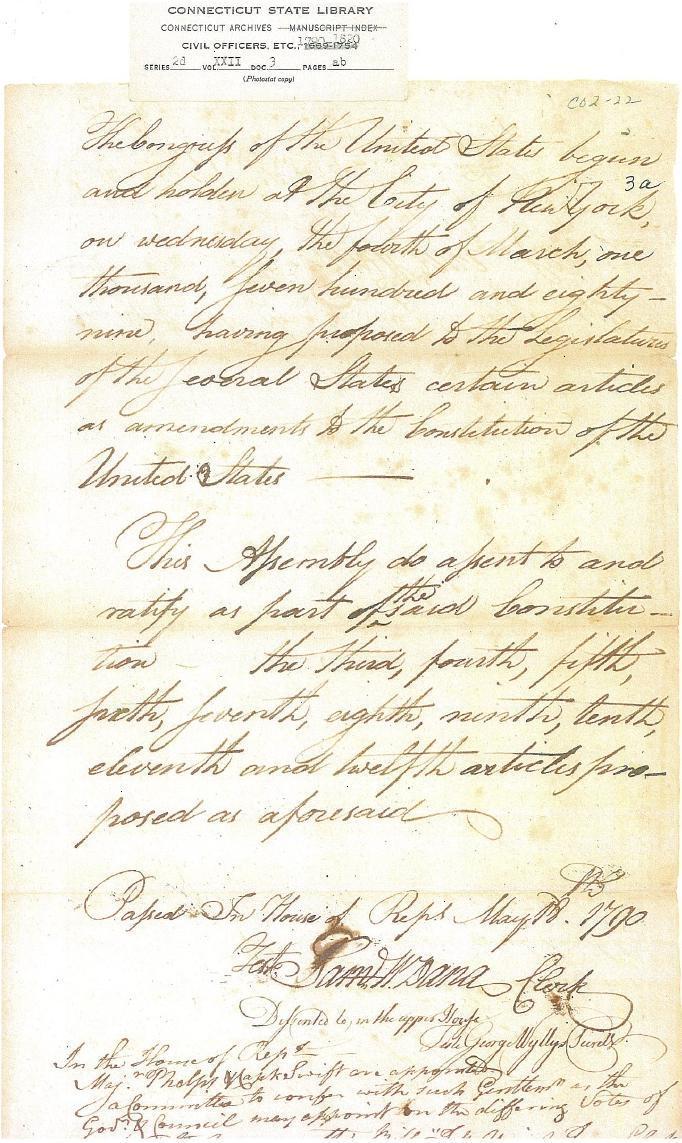 CONNECTICUT STATE LIBRARY
CONNECTICUT ARCHIVES — MANUSCRIPT INDEX
1790-1820
CIVIL OFFICERS, ETC., 1669-1754
SERIES 2d VOL XXII DOC 3 PAGES ab
(Photostat copy)
CO2-22
The Congress of the United States begun
3a
and holden at the City of New York,
on wednesday, the fourth of March, one
thousand, seven hundred and eighty-
nine, having proposed to the Legislatures
of the several States certain articles
as amendments to the Constitution of the
United States ———
This Assembly do assent to and
the
ratify as part of ^ said Constitu-
tion – the third, fourth, fifth,
sixth, seventh, eighth, ninth, tenth,
eleventh and twelfth articles pro-
posed as aforesaid
Passed In House of Reps May 18. 1790
Test. Sam W Dana Clerk
Dissented to, in the upper House
Test George Wyllys Secret.
In the House of Rept
Maj. Phelps & Swift are appointed
a Committee to confer with such Gentlemn as the
Govr. & Council may appoint on the differing Votes of